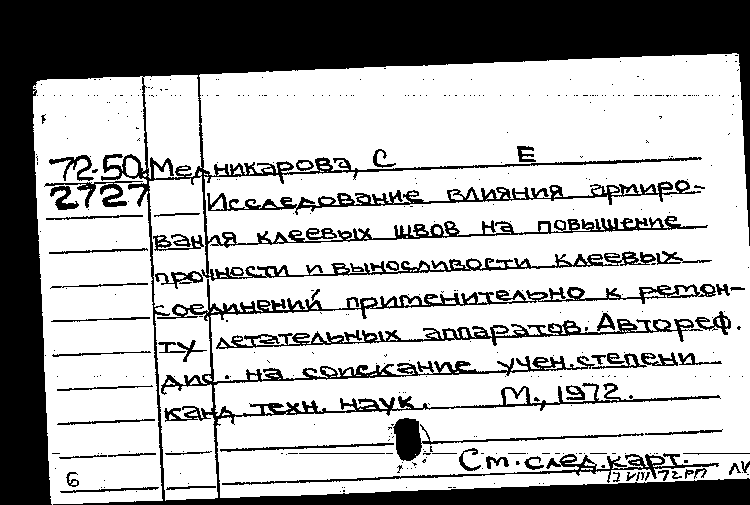 72-50 Медникарова, С Е
2727 Исследование влияния армиро-
вания клеевых швов на повышение
прочности и выносливости клеевых
соединений применительно к ремон-
ту летательных аппаратов. Автореф.
дис. на соискание учен. степени
канд. техн. наук. М., 1972.
См. след. карт.
6